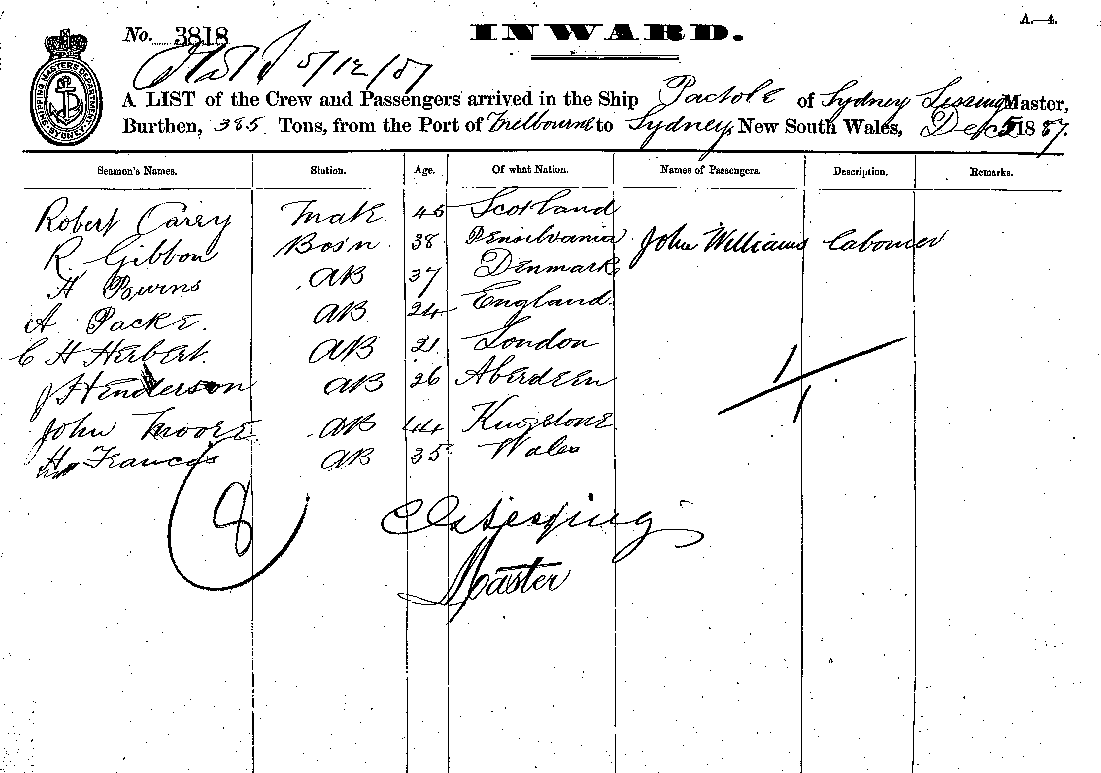 A.—4.
No. 3818 INWARD.
5/12/87
A LIST of the Crew and Passengers arrived in the Ship Pactole of Sydney Lessing Master,
Burthen, 385 Tons, from the Port of Melbourne to Sydney, New South Wales, Dec 5 1887.
Seamen's Names. Station. Age. Of what Nation. Names of Passengers. Description. Remarks.
Robert Carry Mate 45 Scotland
R. Gibbon Bos'n 38 Pensilvania John Williams Labourer
H Burns AB 37 Denmark
A Packe. AB 24 England
C H Herbert. AB 21 London
J Henderson AB 26 Aberdeen
John Moore AB 44 Kingstone
H Francis AB 35 Wales
1/1
8
Master
SHIPPING MASTER'S DEPARTMENT SYDNEY